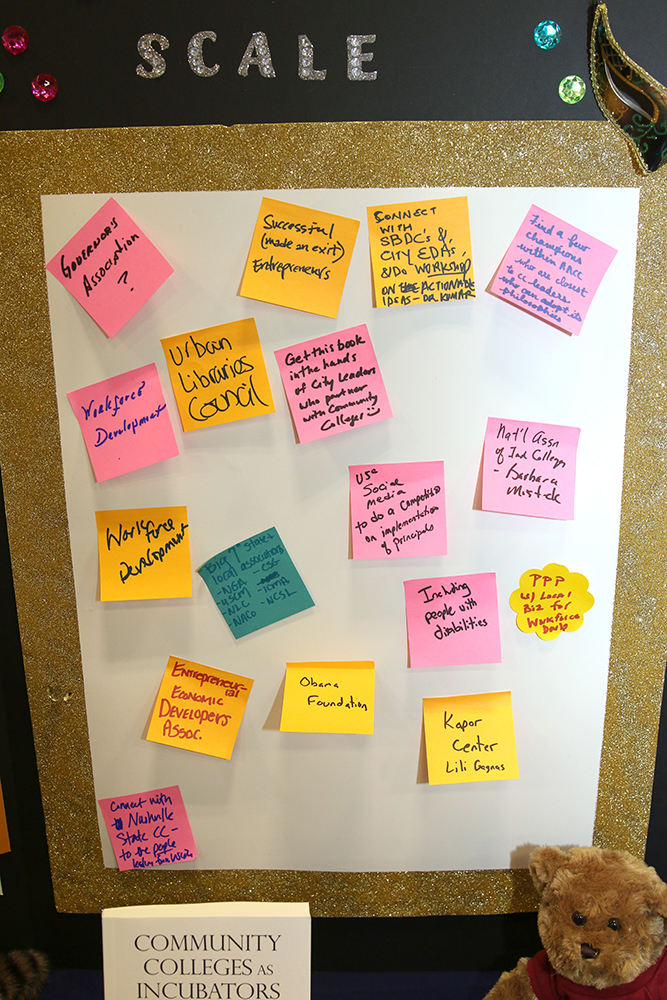 SCALE
GOVERNOR'S
ASSOCIATION
?
Successful
(made an exit)
Entrepreneurs
CONNECT
WITH
SBDC's &
CITY EDAs,
& Do WORKSHOP
ON THE ACTIONABLE
IDEAS - DR KUMAR
Find a few
champions
within
who are closest
to CC leaders
who can adopt its
philosophies
Urban
Libraries
Council
Get this book
in the hands
of City Leaders
who partner
with Community
Colleges
Workforce
Development
Nat'l Assn
of Ind Colleges
- Barbara
Mistick
Use
Social
media
to do a competition
on implementation
of principals
Workforce
Development
Big 7 State &
local associations
- NGA - CSG
- USCM
- NLC - ICMA
- NACo - NCSL
Including
people with
disabilities
PPP
w/ Local
Biz for
Workforce
Entrepreneurial
Economic
Developers
Assoc.
Obama
Foundation
Kapor
Center
Lili
Connect with
Nashville
State CC -
to the people
COMMUNITY
COLLEGES AS
INCUBATORS